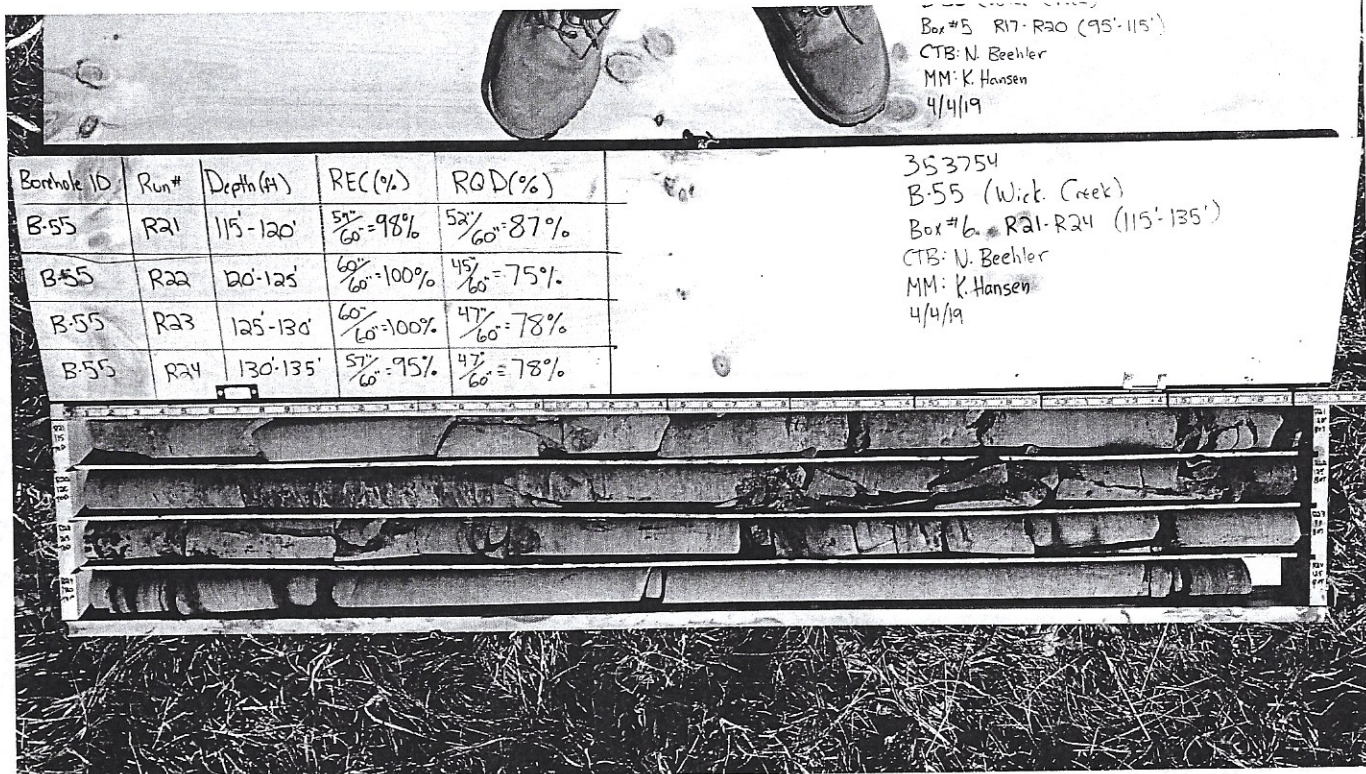 Box #5 R17-R20 (95'-115')
CTB: N. Beehler
MM: K. Hansen
4/4/19
Borehole ID Run# Depth(ft) REC(%) RQD(%)
B-55 R21 115'-120' 59"/60"=98% 52"/60"=87%
B-55 R22 120'-125' 60"/60"=100% 45"/60"=75%
B-55 R23 125'-130' 60"/60"=100% 47"/60"=78%
B-55 R24 130'-135' 57"/60"=95% 47"/60"=78%
353754
B-55 (Wick. Creek)
Box #6. R21-R24 (115'-135')
CTB: N. Beehler
MM: K. Hansen
4/4/19